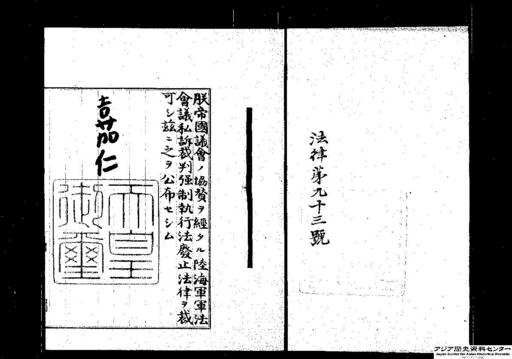 法律第九十三號
朕帝國議會ノ協賛ヲ經タル陸海軍軍法
會議私訴裁判强制執行法廢止法律ヲ裁
可シ茲ニ之ヲ公布セシム
嘉仁
天皇
御璽
アジア歴史資料センター
Japan Center for Asian Historical Records